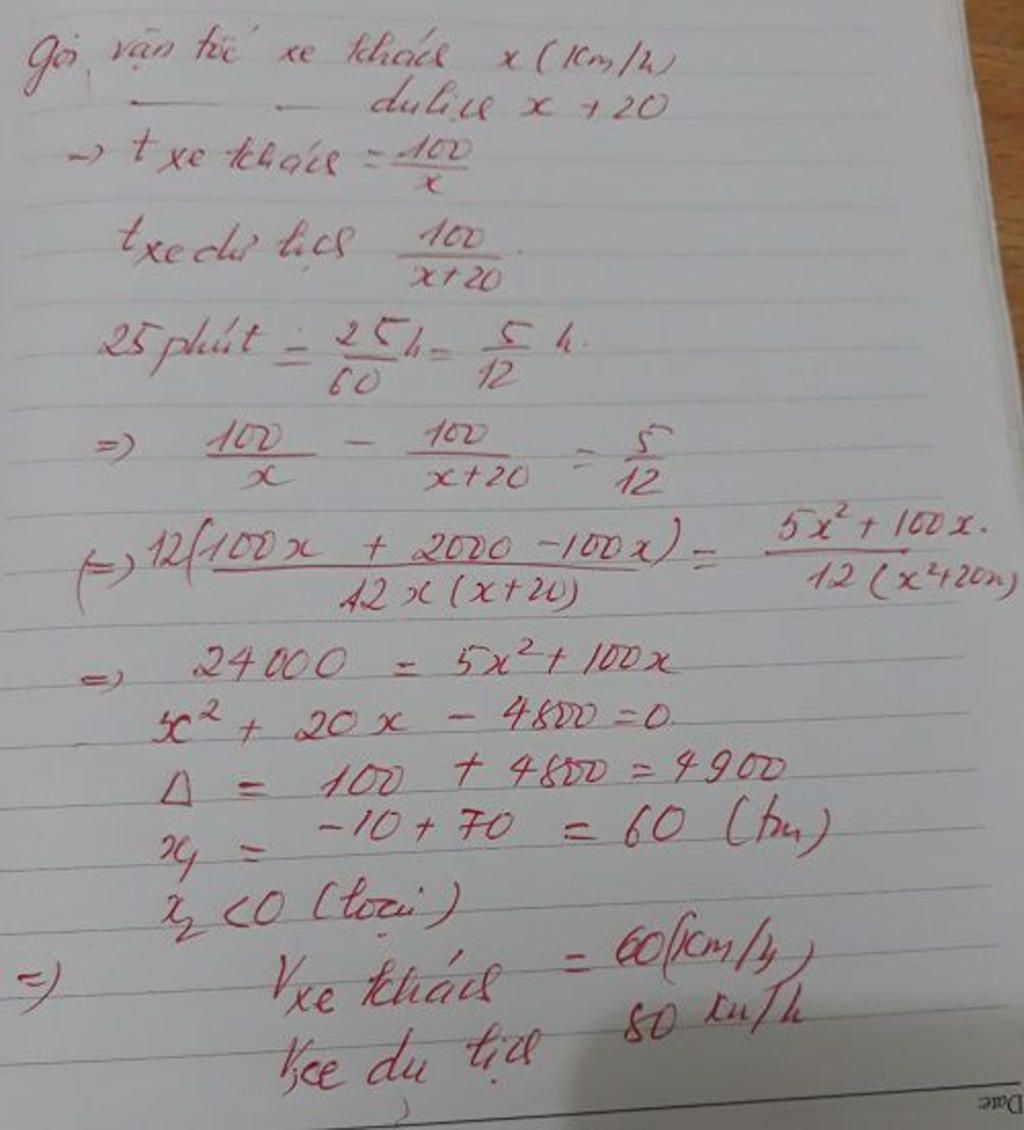 Gọi vận tốc xe khách x (km/h)
— - du lịch x + 20
→ t xe khách = 100/x
t xe du lịch 100/(x+20)
25 phút = 25/60 h = 5/12 h.
=> 100/x - 100/(x+20) = 5/12
(=) 12(100x + 2000 - 100x)/12x(x+20) = (5x² + 100x.)/12(x²+20x)
=> 24000 = 5x² + 100x
x² + 20x - 4800 = 0.
Δ = 100 + 4800 = 4900
x₁ = -10 + 70 = 60 (tm)
x₂ < 0 (loại)
=> V xe khách = 60 (km/h)
V xe du lịch 80 km/h
Date: